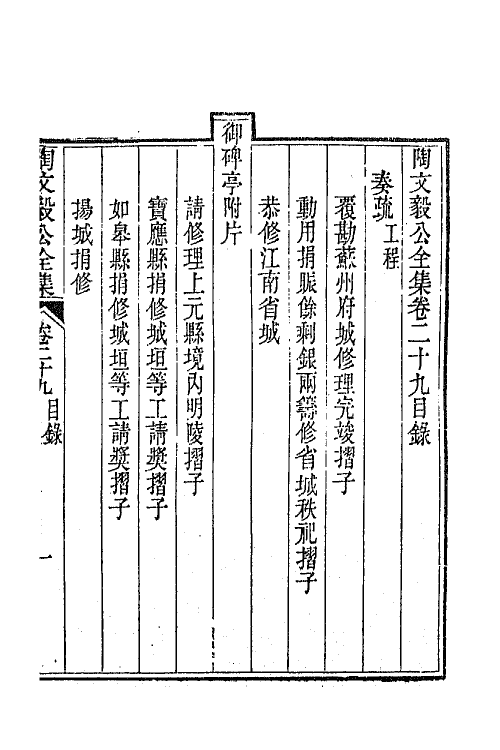 陶文毅公全集卷二十九目錄
奏疏工程
覆勘蘇州府城修理完竣摺子
動用捐賑餘剩銀兩籌修省城秩祀摺子
恭修江南省城
御碑亭附片
請修理上元縣境內明陵摺子
寶應縣捐修城垣等工請獎摺子
如皋縣捐修城垣等工請獎摺子
揚城捐修
陶文毅公全集 卷二十九目錄 一